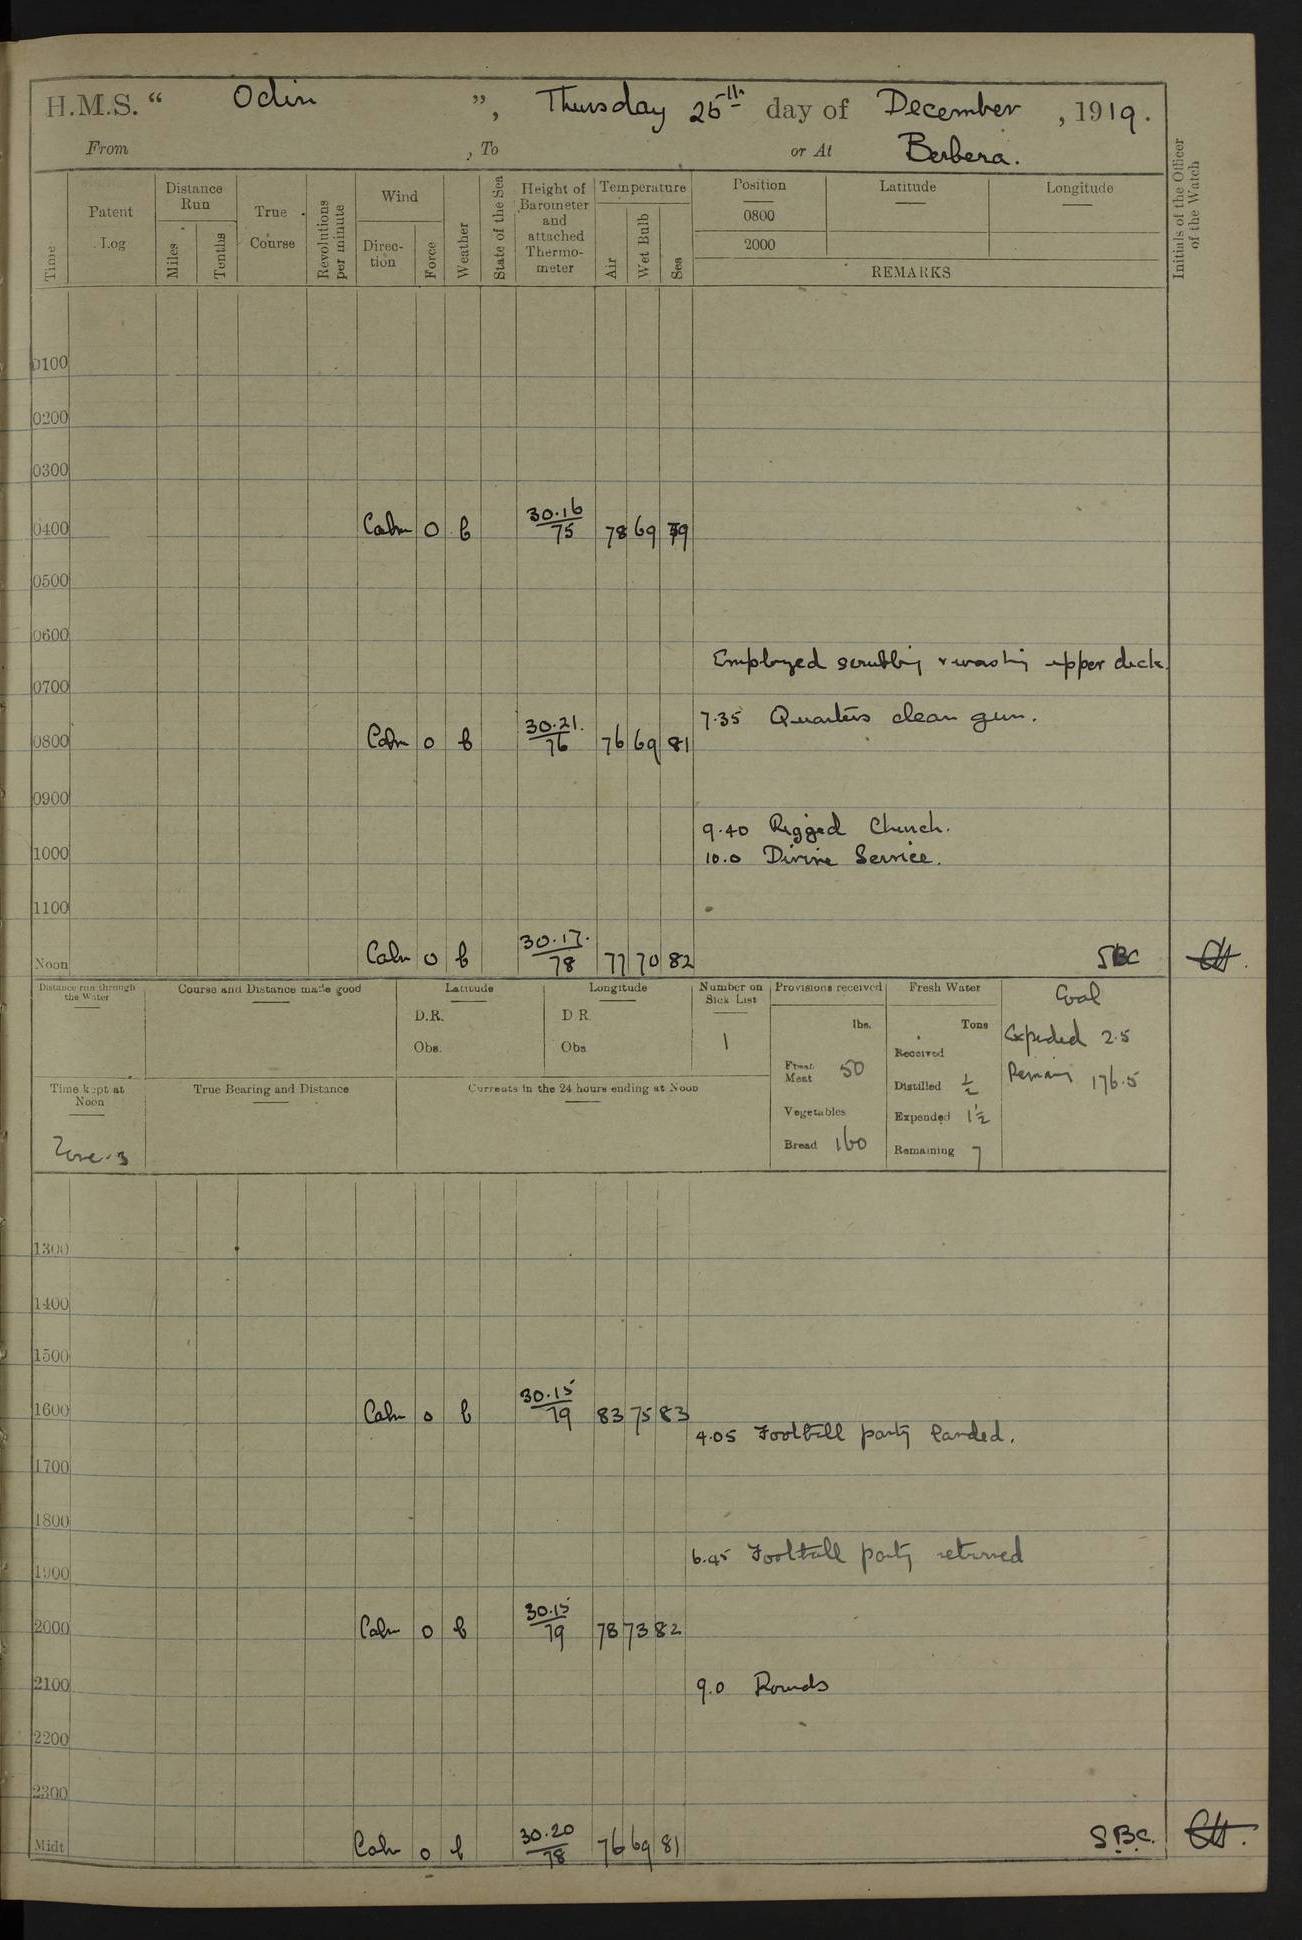 H.M.S. " Odin ", Thursday 25th day of December, 1919.
From , To or At Berbera.
Time Patent Log Distance Run Miles Tenths True Course Revolutions per minute Wind Direc-tion Force Weather State of the Sea Height of Barometer and attached Thermo-meter Temperature Air Wet Bulb Sea Position 0800 2000 Latitude Longitude
REMARKS
Initials of the Officer of the Watch
0100
0200
0300
0400 Calm 0 b 30.16/75 78 69 79
0500
0600
Employed scrubbing & washing upper deck.
0700
7.35 Quarters clean gun.
0800 Calm 0 b 30.21./76 76 69 81
0900
9.40 Rigged Church.
1000 10.0 Divine Service.
1100
Noon Calm 0 b 30.17./78 77 70 82 SBC
Distance run through the Water Course and Distance made good Latitude Longitude Number on Sick List Provisions received Fresh Water Coal
D.R. D R lbs. Tons Expended 2.5
Obs. Obs 1 Received
Fresh Meat 50 Distilled ½ Remain 176.5
Time kept at Noon True Bearing and Distance Currents in the 24 hours ending at Noon
Vegetables Expended 1½
Zone -3 Bread 160 Remaining 7
1300
1400
1500
1600 Calm 0 b 30.15/79 83 75 83
4.05 Football party landed.
1700
1800
6.45 Football party returned
1900
2000 Calm 0 b 30.15/79 78 73 82
2100 9.0 Rounds
2200
2300
Midt Calm 0 b 30.20/78 76 69 81 S.B.C.